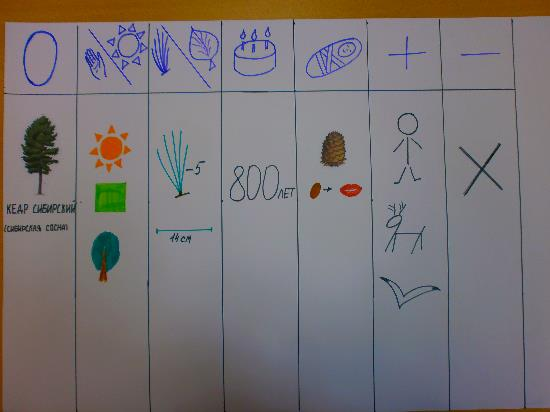 КЕДР СИБИРСКИЙ
(СИБИРСКАЯ СОСНА)
-5
14 см
800 ЛЕТ